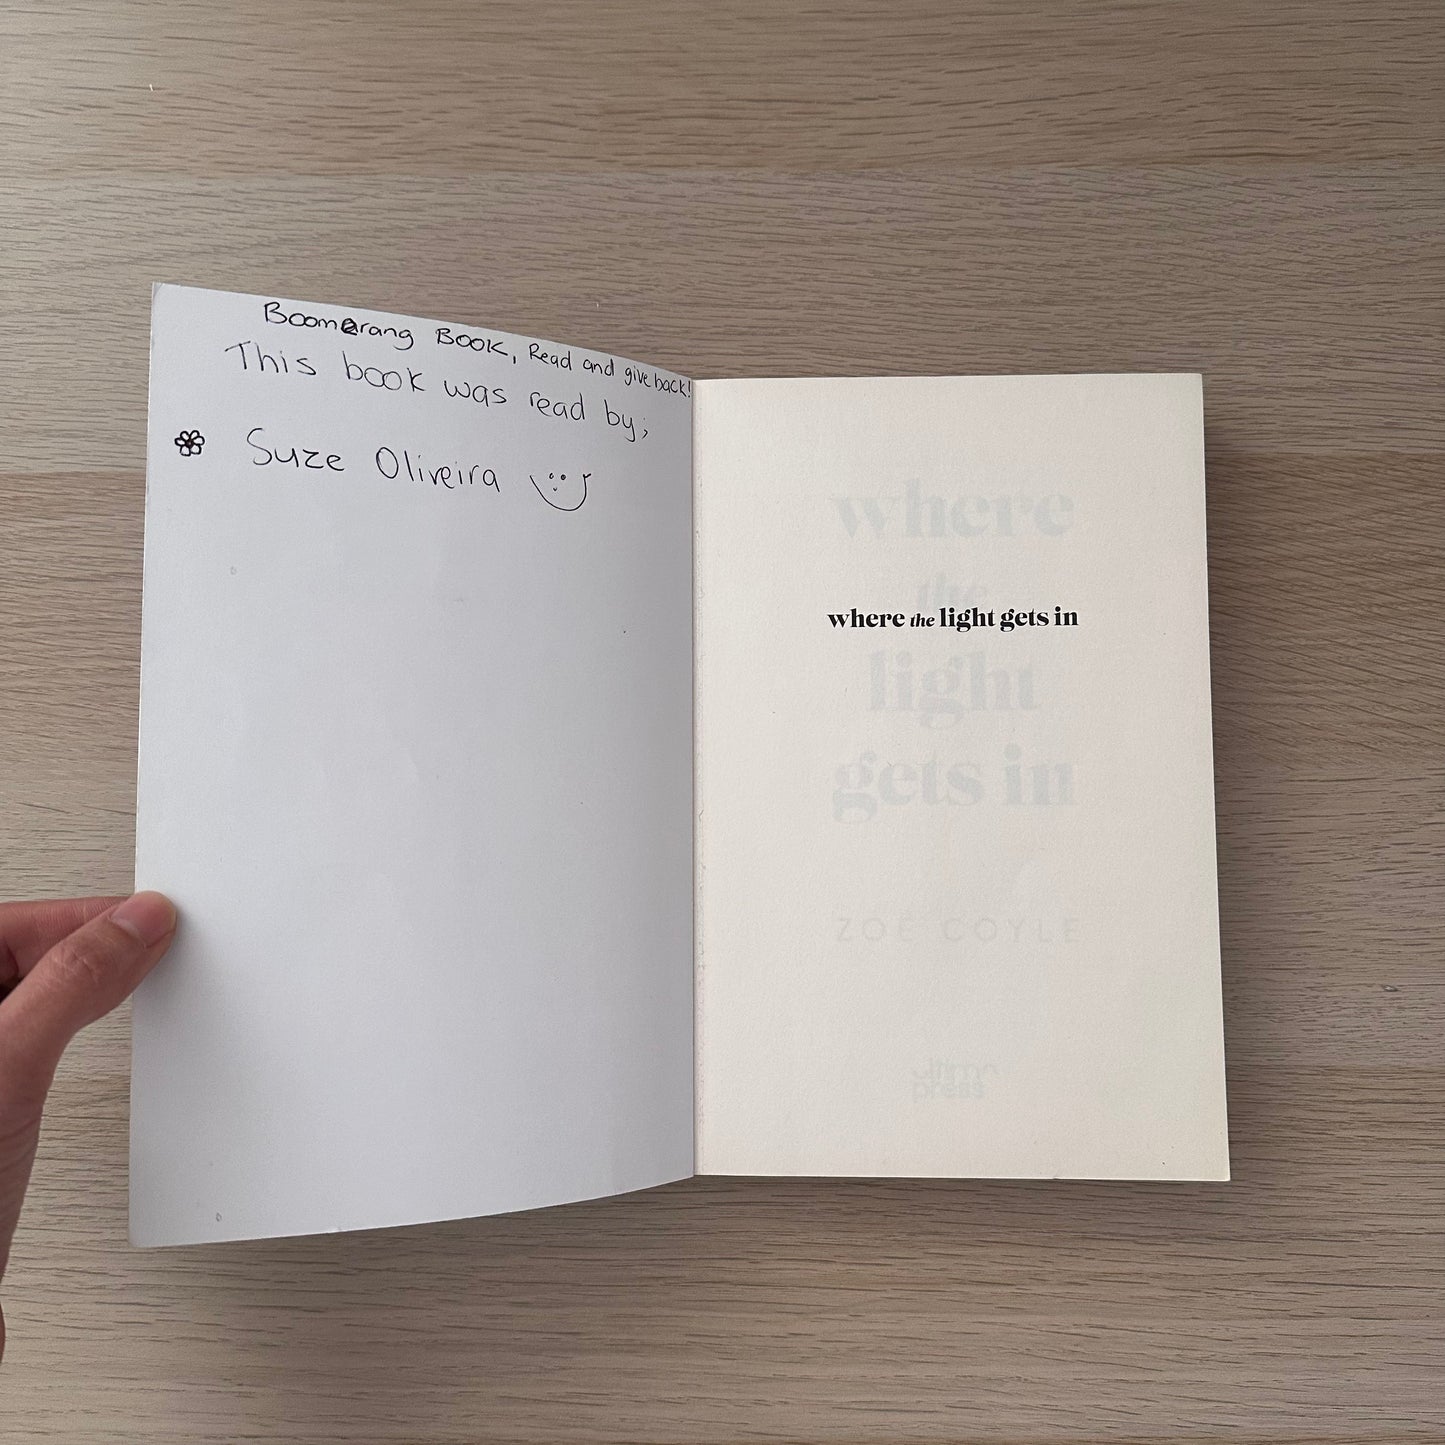 Boomerang Book, Read and give back!
This book was read by;
Suze Oliveira
where the light gets in
where
the
light
gets in
ZOË COYLE
ultimo
press